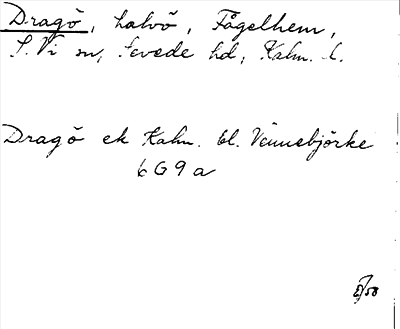 Dragö, halvö, Fågelhem,
S. Vi sn, Sevede hd, Kalm. l.
Dragö ek Kalm. bl. Vännebjörke
6G9a